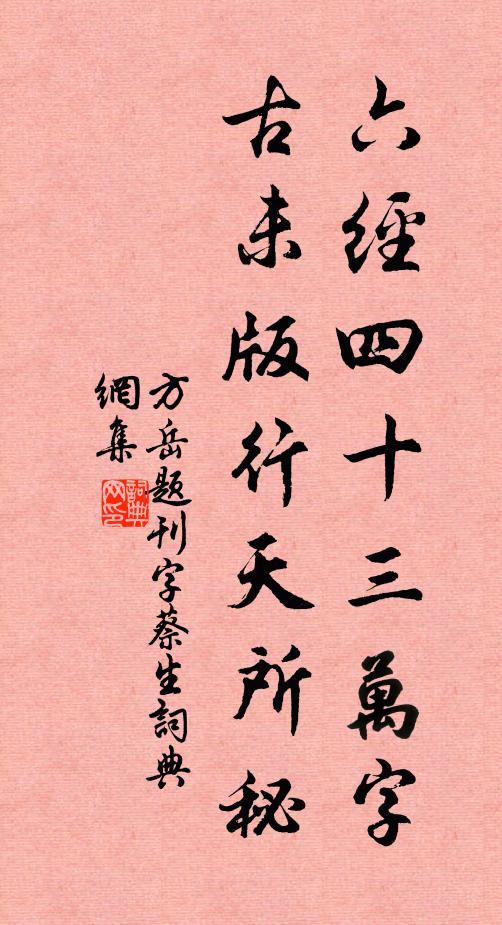 六經四十三萬字
古未版行天所秘
方岳題刊字蔡生詞典
網集
詞典網印